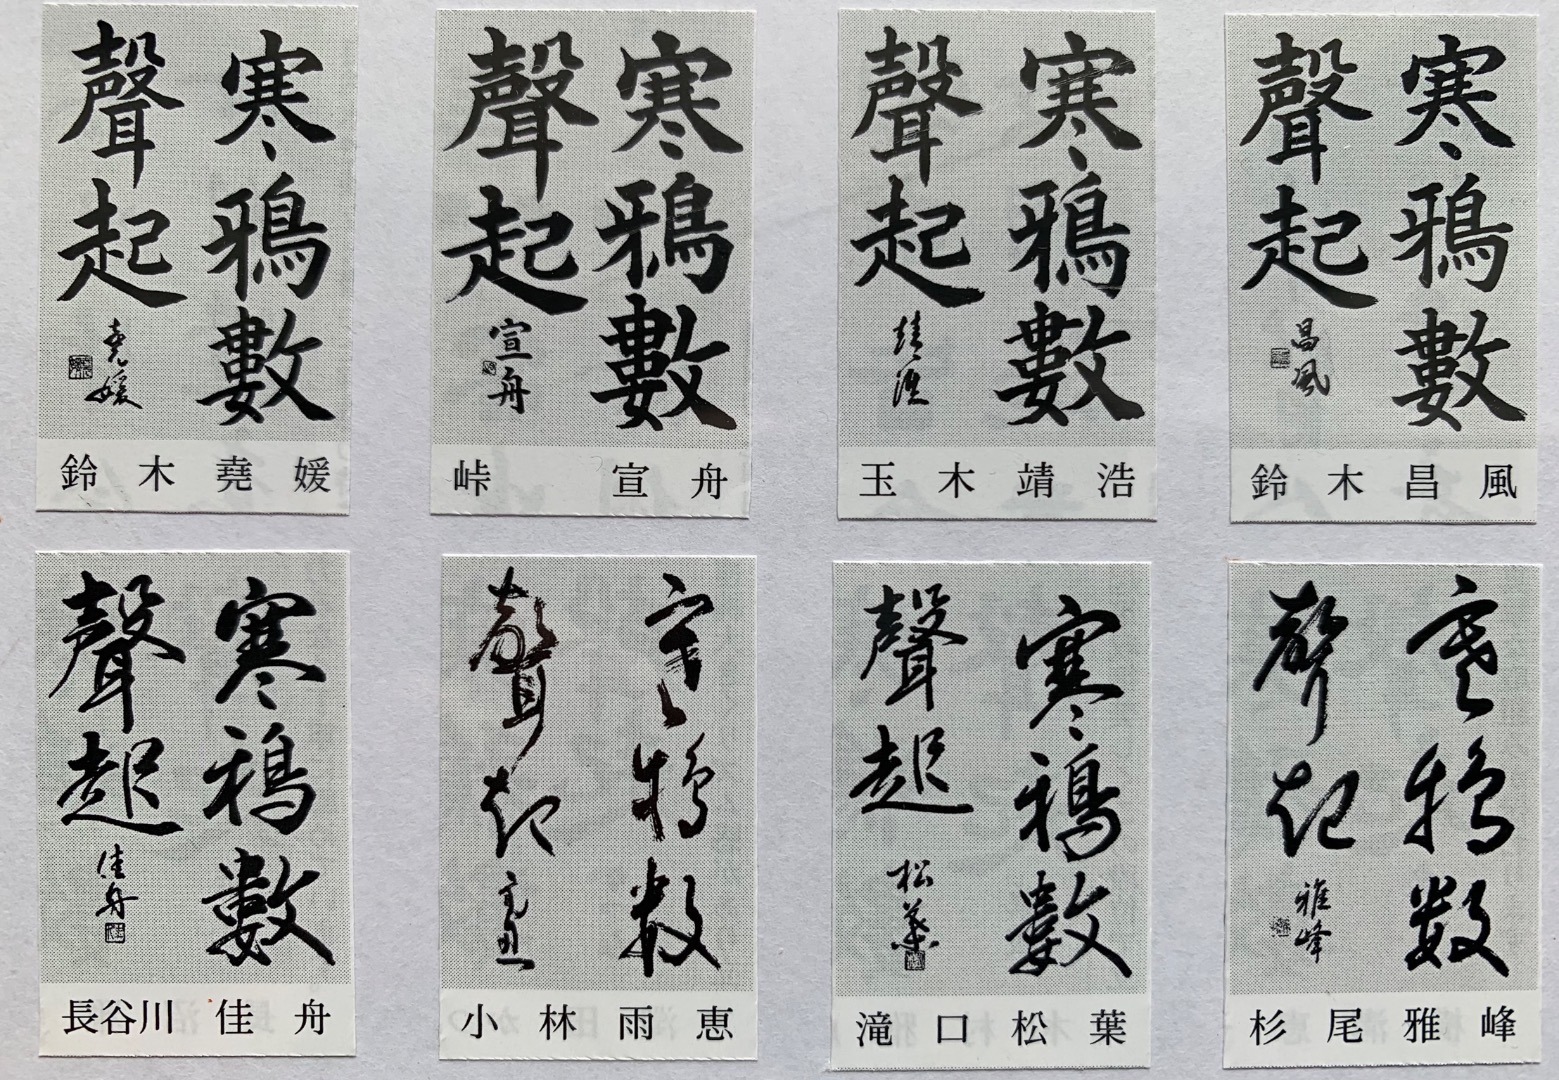 寒鴉數
聲起
堯媛
鈴木堯媛
寒鴉數
聲起
宣舟
峠 宣舟
寒鴉數
聲起
靖浩
玉木靖浩
寒鴉數
聲起
昌風
鈴木昌風
寒鴉數
聲起
佳舟
長谷川佳舟
寒鴉数
聲起
雨恵
小林雨恵
寒鴉數
聲起
松葉
滝口松葉
寒鴉数
聲起
雅峰
杉尾雅峰